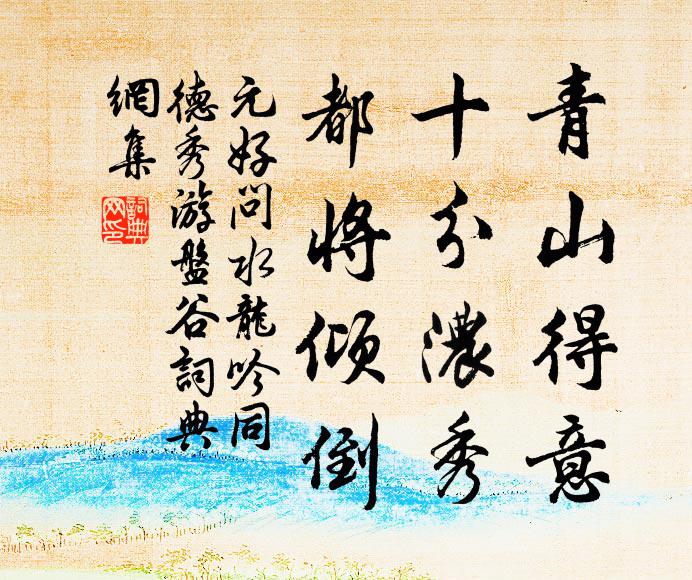 青山得意
十分濃秀
都將傾倒
元好問水龍吟同
德秀游盤谷詞典
網集
詞典
网印